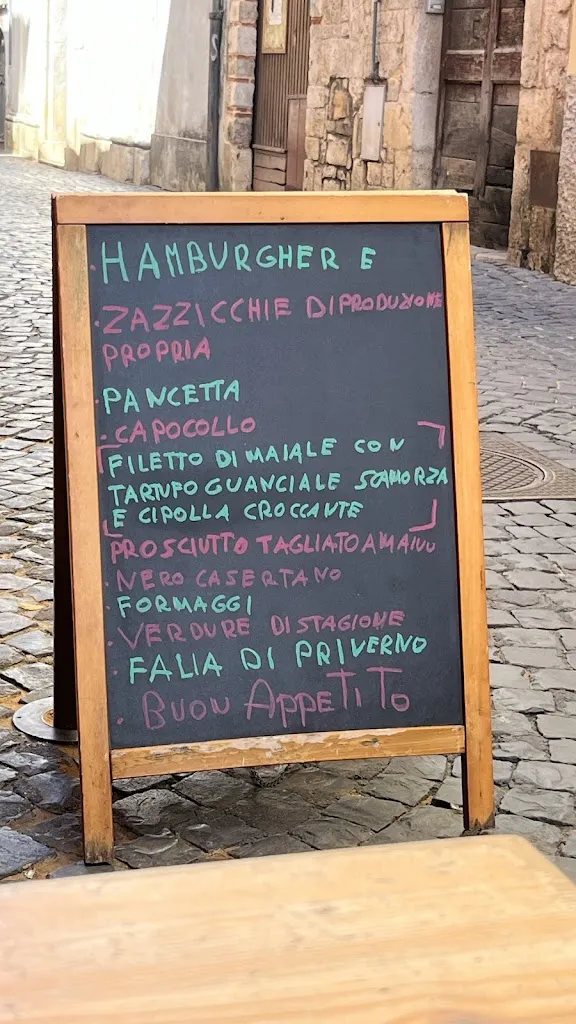 · HAMBURGHER E
· ZAZZICCHIE DI PRODUZIONE
PROPRIA
· PANCETTA
· CAPOCOLLO
FILETTO DI MAIALE CON
TARTUFO GUANCIALE SCAMORZA
E CIPOLLA CROCCANTE
PROSCIUTTO TAGLIATO A MANO
· NERO CASERTANO
· FORMAGGI
· VERDURE DI STAGIONE
· FALIA DI PRIVERNO
· BUON APPETITO